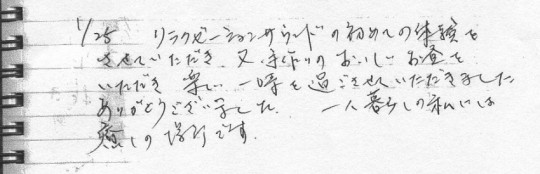 1/25 リラクゼーションサウンドの初めての体験を
させていただき、又、手作りのおいしいお昼を
いただき 楽しい一時を過ごさせていただきました
ありがとうございました。 一人暮らしの私には
癒しの場所です。